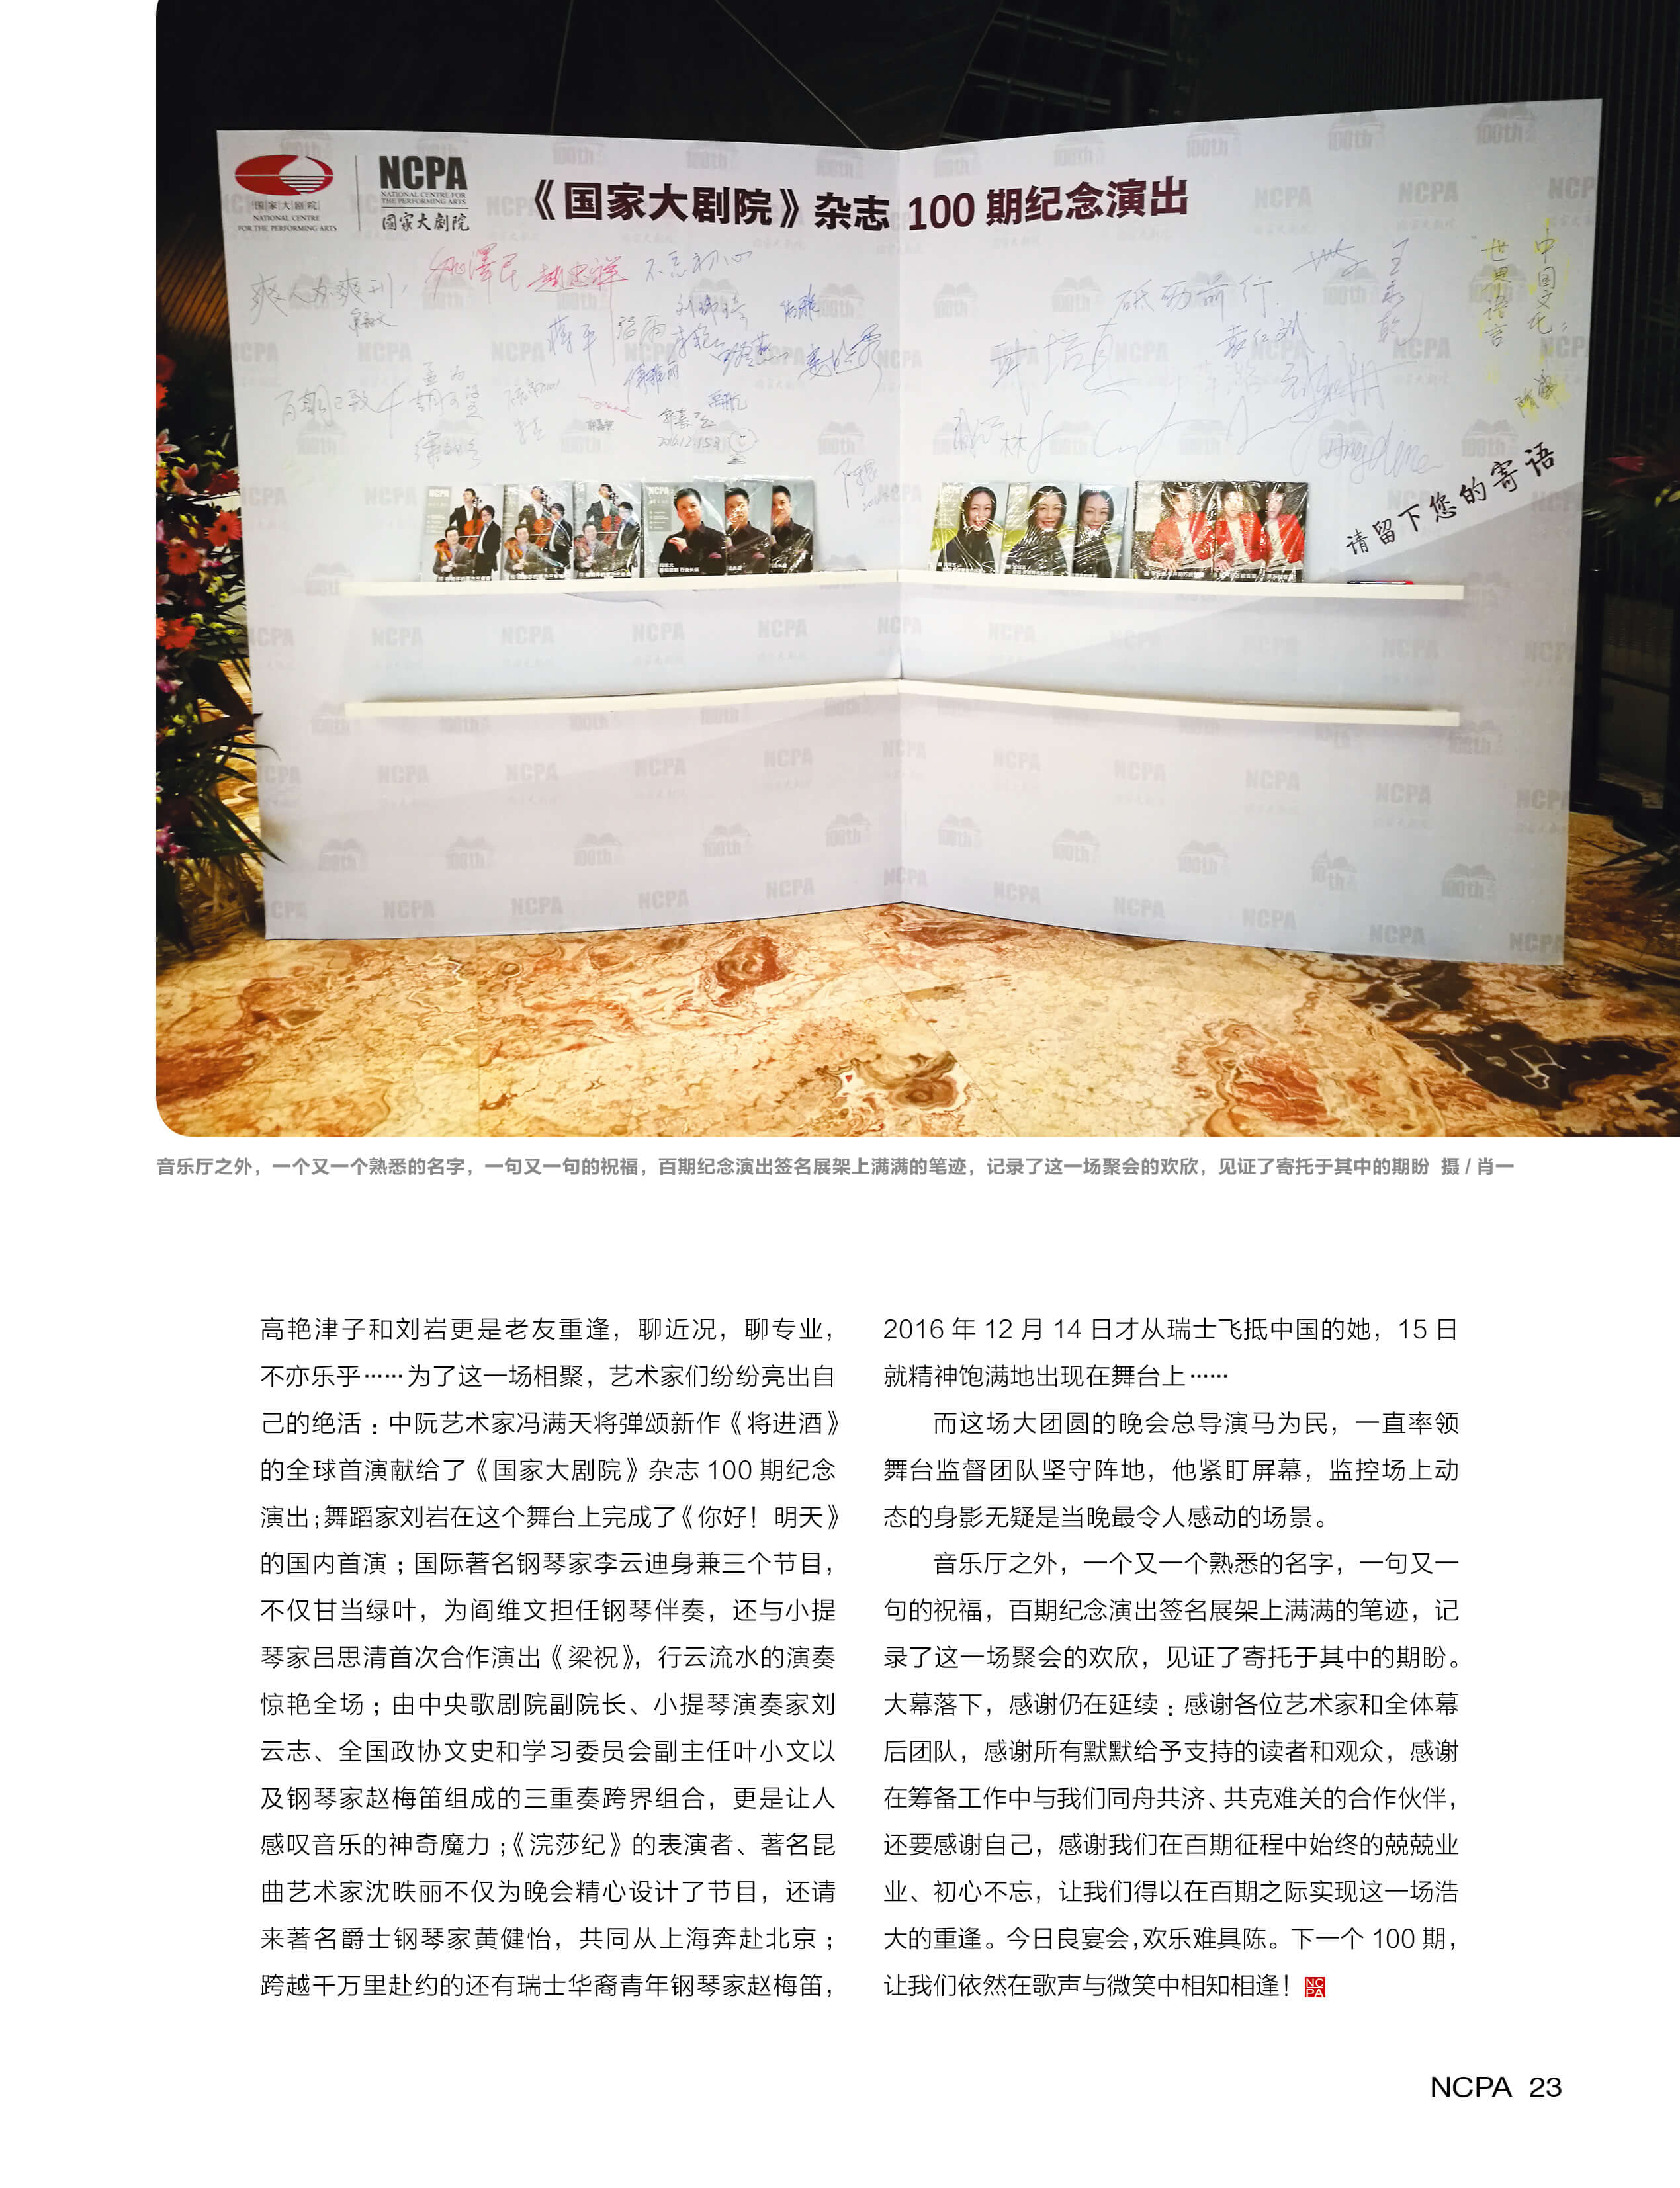 国家大剧院
NATIONAL CENTRE
FOR THE PERFORMING ARTS
NCPA
NATIONAL CENTRE FOR
THE PERFORMING ARTS
國家大劇院
《国家大剧院》杂志 100 期纪念演出
不忘初心
砥砺前行
中国文化
世界语言
请留下您的寄语
音乐厅之外，一个又一个熟悉的名字，一句又一句的祝福，百期纪念演出签名展架上满满的笔迹，记录了这一场聚会的欢欣，见证了寄托于其中的期盼 摄 / 肖一
高艳津子和刘岩更是老友重逢，聊近况，聊专业，
不亦乐乎……为了这一场相聚，艺术家们纷纷亮出自
己的绝活：中阮艺术家冯满天将弹颂新作《将进酒》
的全球首演献给了《国家大剧院》杂志 100 期纪念
演出；舞蹈家刘岩在这个舞台上完成了《你好！明天》
的国内首演；国际著名钢琴家李云迪身兼三个节目，
不仅甘当绿叶，为阎维文担任钢琴伴奏，还与小提
琴家吕思清首次合作演出《梁祝》，行云流水的演奏
惊艳全场；由中央歌剧院副院长、小提琴演奏家刘
云志、全国政协文史和学习委员会副主任叶小文以
及钢琴家赵梅笛组成的三重奏跨界组合，更是让人
感叹音乐的神奇魔力；《浣莎纪》的表演者、著名昆
曲艺术家沈昳丽不仅为晚会精心设计了节目，还请
来著名爵士钢琴家黄健怡，共同从上海奔赴北京；
跨越千万里赴约的还有瑞士华裔青年钢琴家赵梅笛，
2016 年 12 月 14 日才从瑞士飞抵中国的她，15 日
就精神饱满地出现在舞台上……
而这场大团圆的晚会总导演马为民，一直率领
舞台监督团队坚守阵地，他紧盯屏幕，监控场上动
态的身影无疑是当晚最令人感动的场景。
音乐厅之外，一个又一个熟悉的名字，一句又一
句的祝福，百期纪念演出签名展架上满满的笔迹，记
录了这一场聚会的欢欣，见证了寄托于其中的期盼。
大幕落下，感谢仍在延续：感谢各位艺术家和全体幕
后团队，感谢所有默默给予支持的读者和观众，感谢
在筹备工作中与我们同舟共济、共克难关的合作伙伴，
还要感谢自己，感谢我们在百期征程中始终的兢兢业
业、初心不忘，让我们得以在百期之际实现这一场浩
大的重逢。今日良宴会，欢乐难具陈。下一个 100 期，
让我们依然在歌声与微笑中相知相逢！
NCPA 23